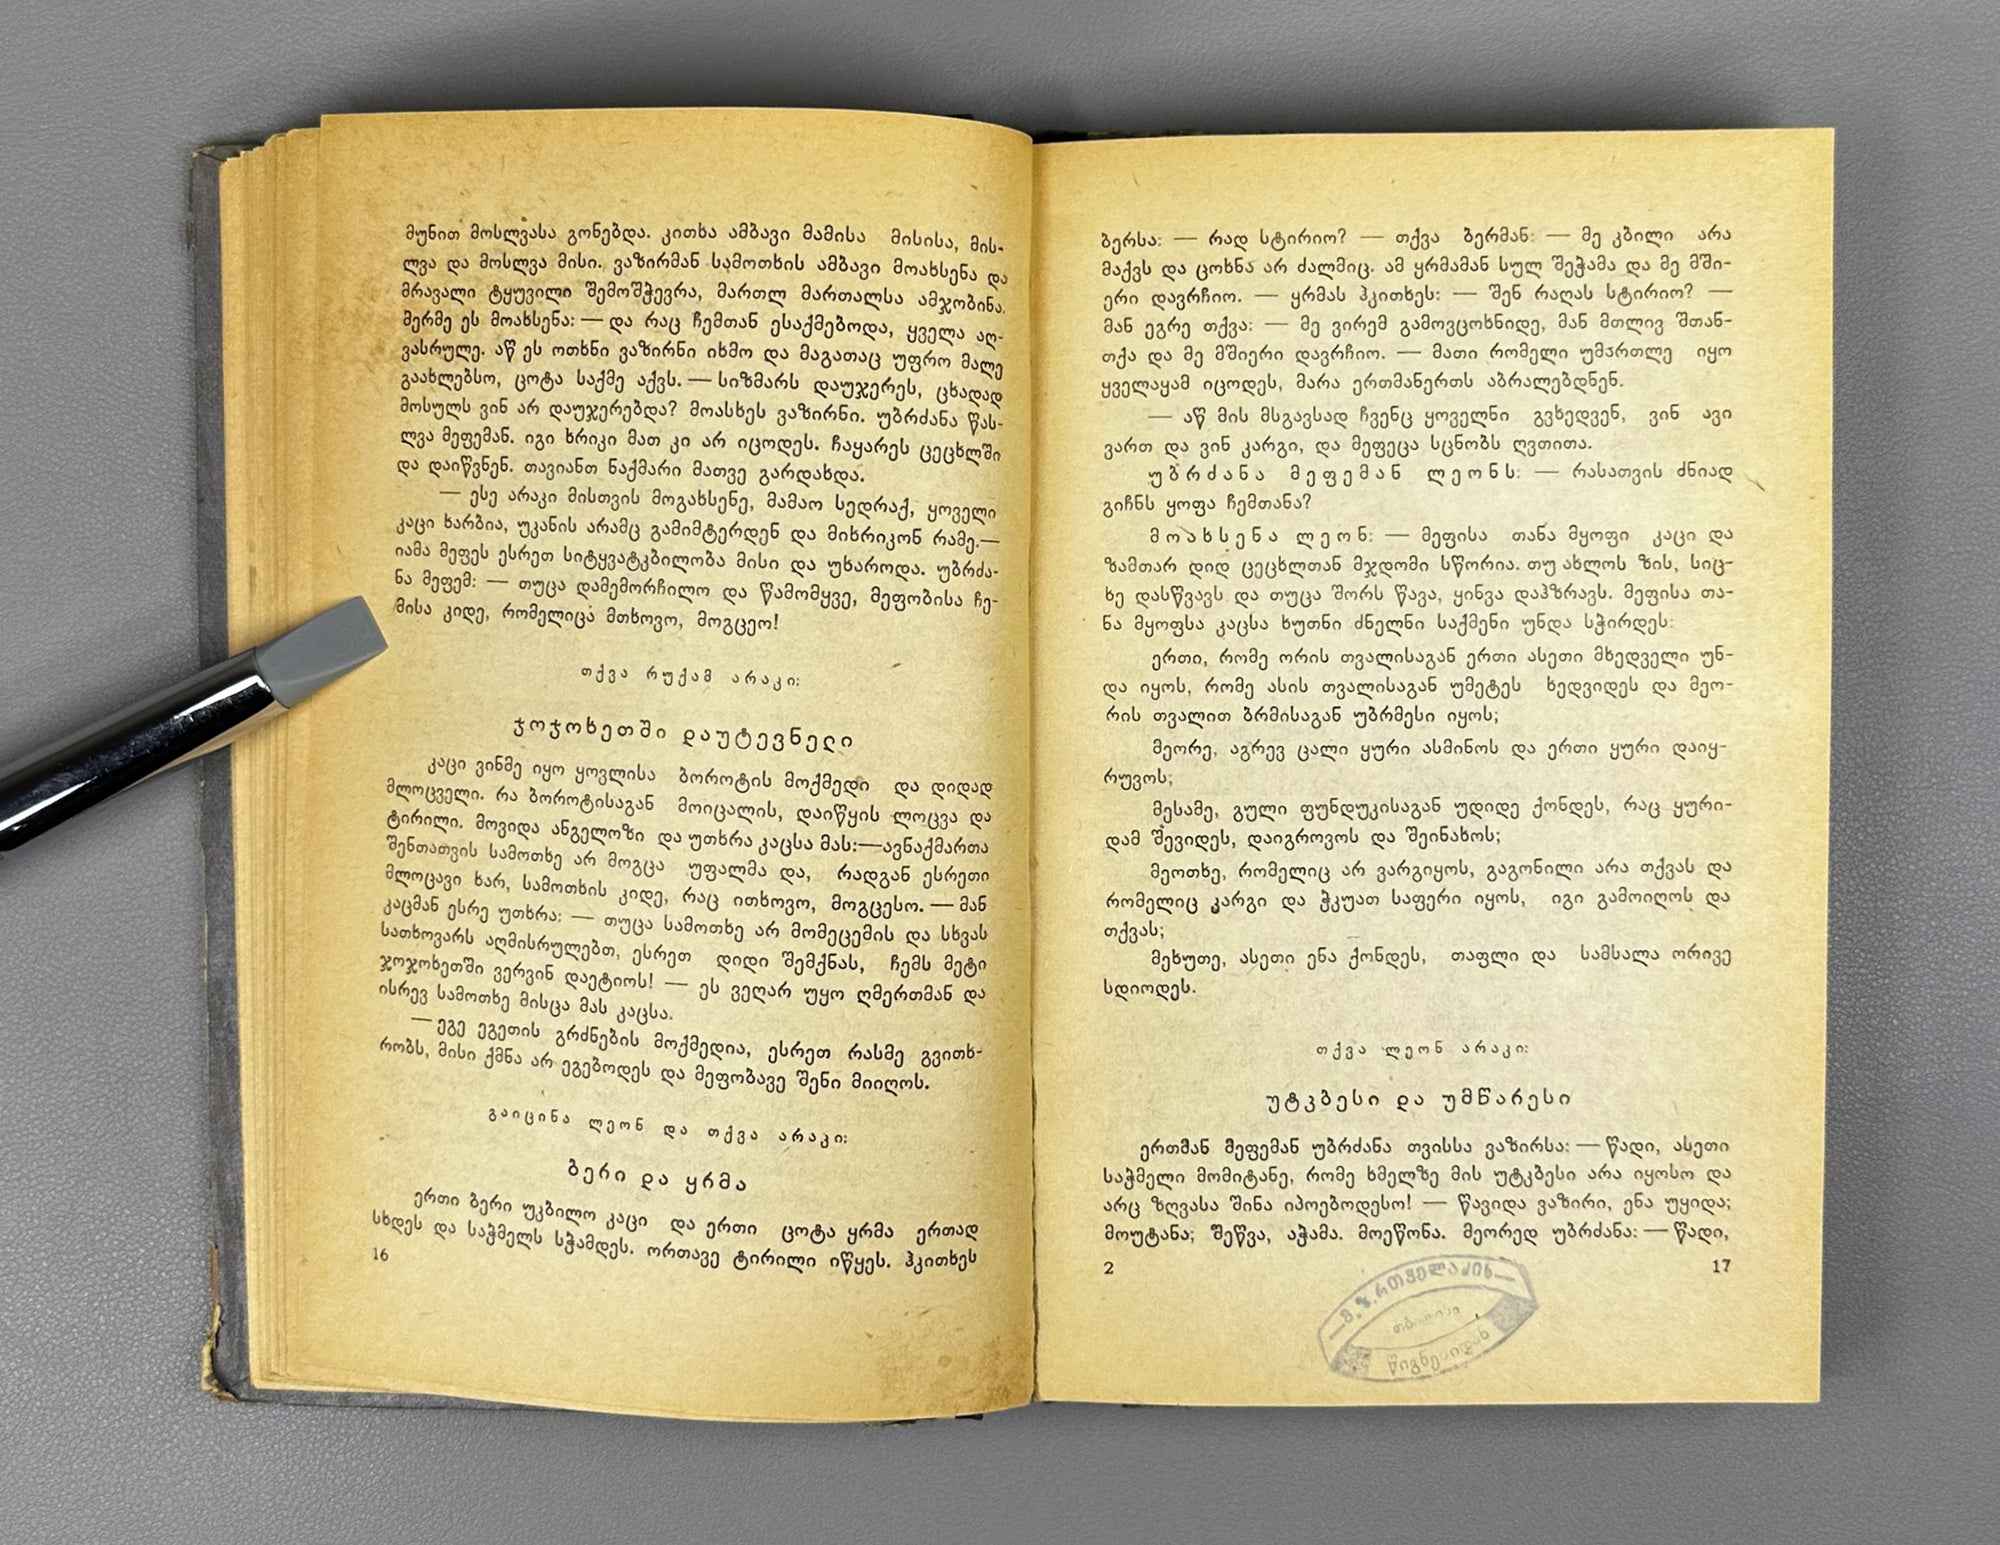 მუნით მოსლვასა გონებდა. კითხა ამბავი მამისა მისისა, მის-
ლვა და მოსლვა მისი. ვაზირმან სამოთხის ამბავი მოახსენა და
მრავალი ტყუვილი შემოშჭევრა, მართლ მართალსა ამჯობინა.
მერმე ეს მოახსენა: — და რაც ჩემთან ესაქმებოდა, ყველა აღ-
ვასრულე. აწ ეს ოთხნი ვაზირნი იხმო და მაგათაც უფრო მალე
გაახლებსო, ცოტა საქმე აქვს. — სიზმარს დაუჯერეს, ცხადად
მოსულს ვინ არ დაუჯერებდა? მოასხეს ვაზირნი. უბრძანა წას-
ლვა მეფემან. იგი ხრიკი მათ კი არ იცოდეს. ჩაყარეს ცეცხლში
და დაიწვნენ. თავიანთ ნაქმარი მათვე გარდახდა.
— ესე არაკი მისთვის მოგახსენე, მამაო სედრაქ, ყოველი
კაცი ხარბია, უკანის არამც გამიმტერდენ და მიხრიკონ რამე.—
იამა მეფეს ესრეთ სიტყვატკბილობა მისი და უხაროდა. უბრძა-
ნა მეფემ: — თუცა დამემორჩილო და წამომყვე, მეფობისა ჩე-
მისა კიდე, რომელიცა მთხოვო, მოგცეო!
თქვა რუქამ არაკი:
ჯოჯოხეთში დაუტევნელი
კაცი ვინმე იყო ყოვლისა ბოროტის მოქმედი და დიდად
მლოცველი. რა ბოროტისაგან მოიცალის, დაიწყის ლოცვა და
ტირილი. მოვიდა ანგელოზი და უთხრა კაცსა მას:—ავნაქმართა
შენთათვის სამოთხე არ მოგცა უფალმა და, რადგან ესრეთი
მლოცავი ხარ, სამოთხის კიდე, რაც ითხოვო, მოგცესო. — მან
კაცმან ესრე უთხრა: — თუცა სამოთხე არ მომეცემის და სხვას
სათხოვარს აღმისრულებთ, ესრეთ დიდი შემქნას, ჩემს მეტი
ჯოჯოხეთში ვერვინ დაეტიოს! — ეს ვეღარ უყო ღმერთმან და
ისრევ სამოთხე მისცა მას კაცსა.
— ეგე ეგეთის გრძნების მოქმედია, ესრეთ რასმე გვითხ-
რობს, მისი ქმნა არ ეგებოდეს და მეფობავე შენი მიიღოს.
გაიცინა ლეონ და თქვა არაკი:
ბერი და ყრმა
ერთი ბერი უკბილო კაცი და ერთი ცოტა ყრმა ერთად
სხდეს და საჭმელს სჭამდეს. ორთავე ტირილი იწყეს. ჰკითხეს
16
ბერსა: — რად სტირიო? — თქვა ბერმან: — მე კბილი არა
მაქვს და ცოხნა არ ძალმიც. ამ ყრმამან სულ შეჭამა და მე მში-
ერი დავრჩიო. — ყრმას ჰკითხეს: — შენ რაღას სტირიო? —
მან ეგრე თქვა: — მე ვირემ გამოვცოხნიდე, მან მთლივ შთან-
თქა და მე მშიერი დავრჩიო. — მათი რომელი უმართლე იყო
ყველაყამ იცოდეს, მარა ერთმანერთს აბრალებდნენ.
— აწ მის მსგავსად ჩვენც ყოველნი გვხედვენ, ვინ ავი
ვართ და ვინ კარგი, და მეფეცა სცნობს ღვთითა.
უბრძანა მეფემან ლეონს: — რასათვის ძნიად
გიჩნს ყოფა ჩემთანა?
მოახსენა ლეონ: — მეფისა თანა მყოფი კაცი და
ზამთარ დიდ ცეცხლთან მჯდომი სწორია. თუ ახლოს ზის, სიც-
ხე დასწვავს და თუცა შორს წავა, ყინვა დაჰზრავს. მეფისა თა-
ნა მყოფსა კაცსა ხუთნი ძნელნი საქმენი უნდა სჭირდეს:
ერთი, რომე ორის თვალისაგან ერთი ასეთი მხედველი უნ-
და იყოს, რომე ასის თვალისაგან უმეტეს ხედვიდეს და მეო-
რის თვალით ბრმისაგან უბრმესი იყოს;
მეორე, აგრევ ცალი ყური ასმინოს და ერთი ყური დაიყ-
რუვოს;
მესამე, გული ფუნდუკისაგან უდიდე ქონდეს, რაც ყური-
დამ შევიდეს, დაიგროვოს და შეინახოს;
მეოთხე, რომელიც არ ვარგიყოს, გაგონილი არა თქვას და
რომელიც კარგი და ჭკუათ საფერი იყოს, იგი გამოიღოს და
თქვას;
მეხუთე, ასეთი ენა ქონდეს, თაფლი და სამსალა ორივე
სდიოდეს.
თქვა ლეონ არაკი:
უტკბესი და უმწარესი
ერთმან მეფემან უბრძანა თვისსა ვაზირსა: — წადი, ასეთი
საჭმელი მომიტანე, რომე ხმელზე მის უტკბესი არა იყოსო და
არც ზღვასა შინა იპოებოდესო! — წავიდა ვაზირი, ენა უყიდა;
მოუტანა; შეწვა, აჭამა. მოეწონა. მეორედ უბრძანა: — წადი,
2
17